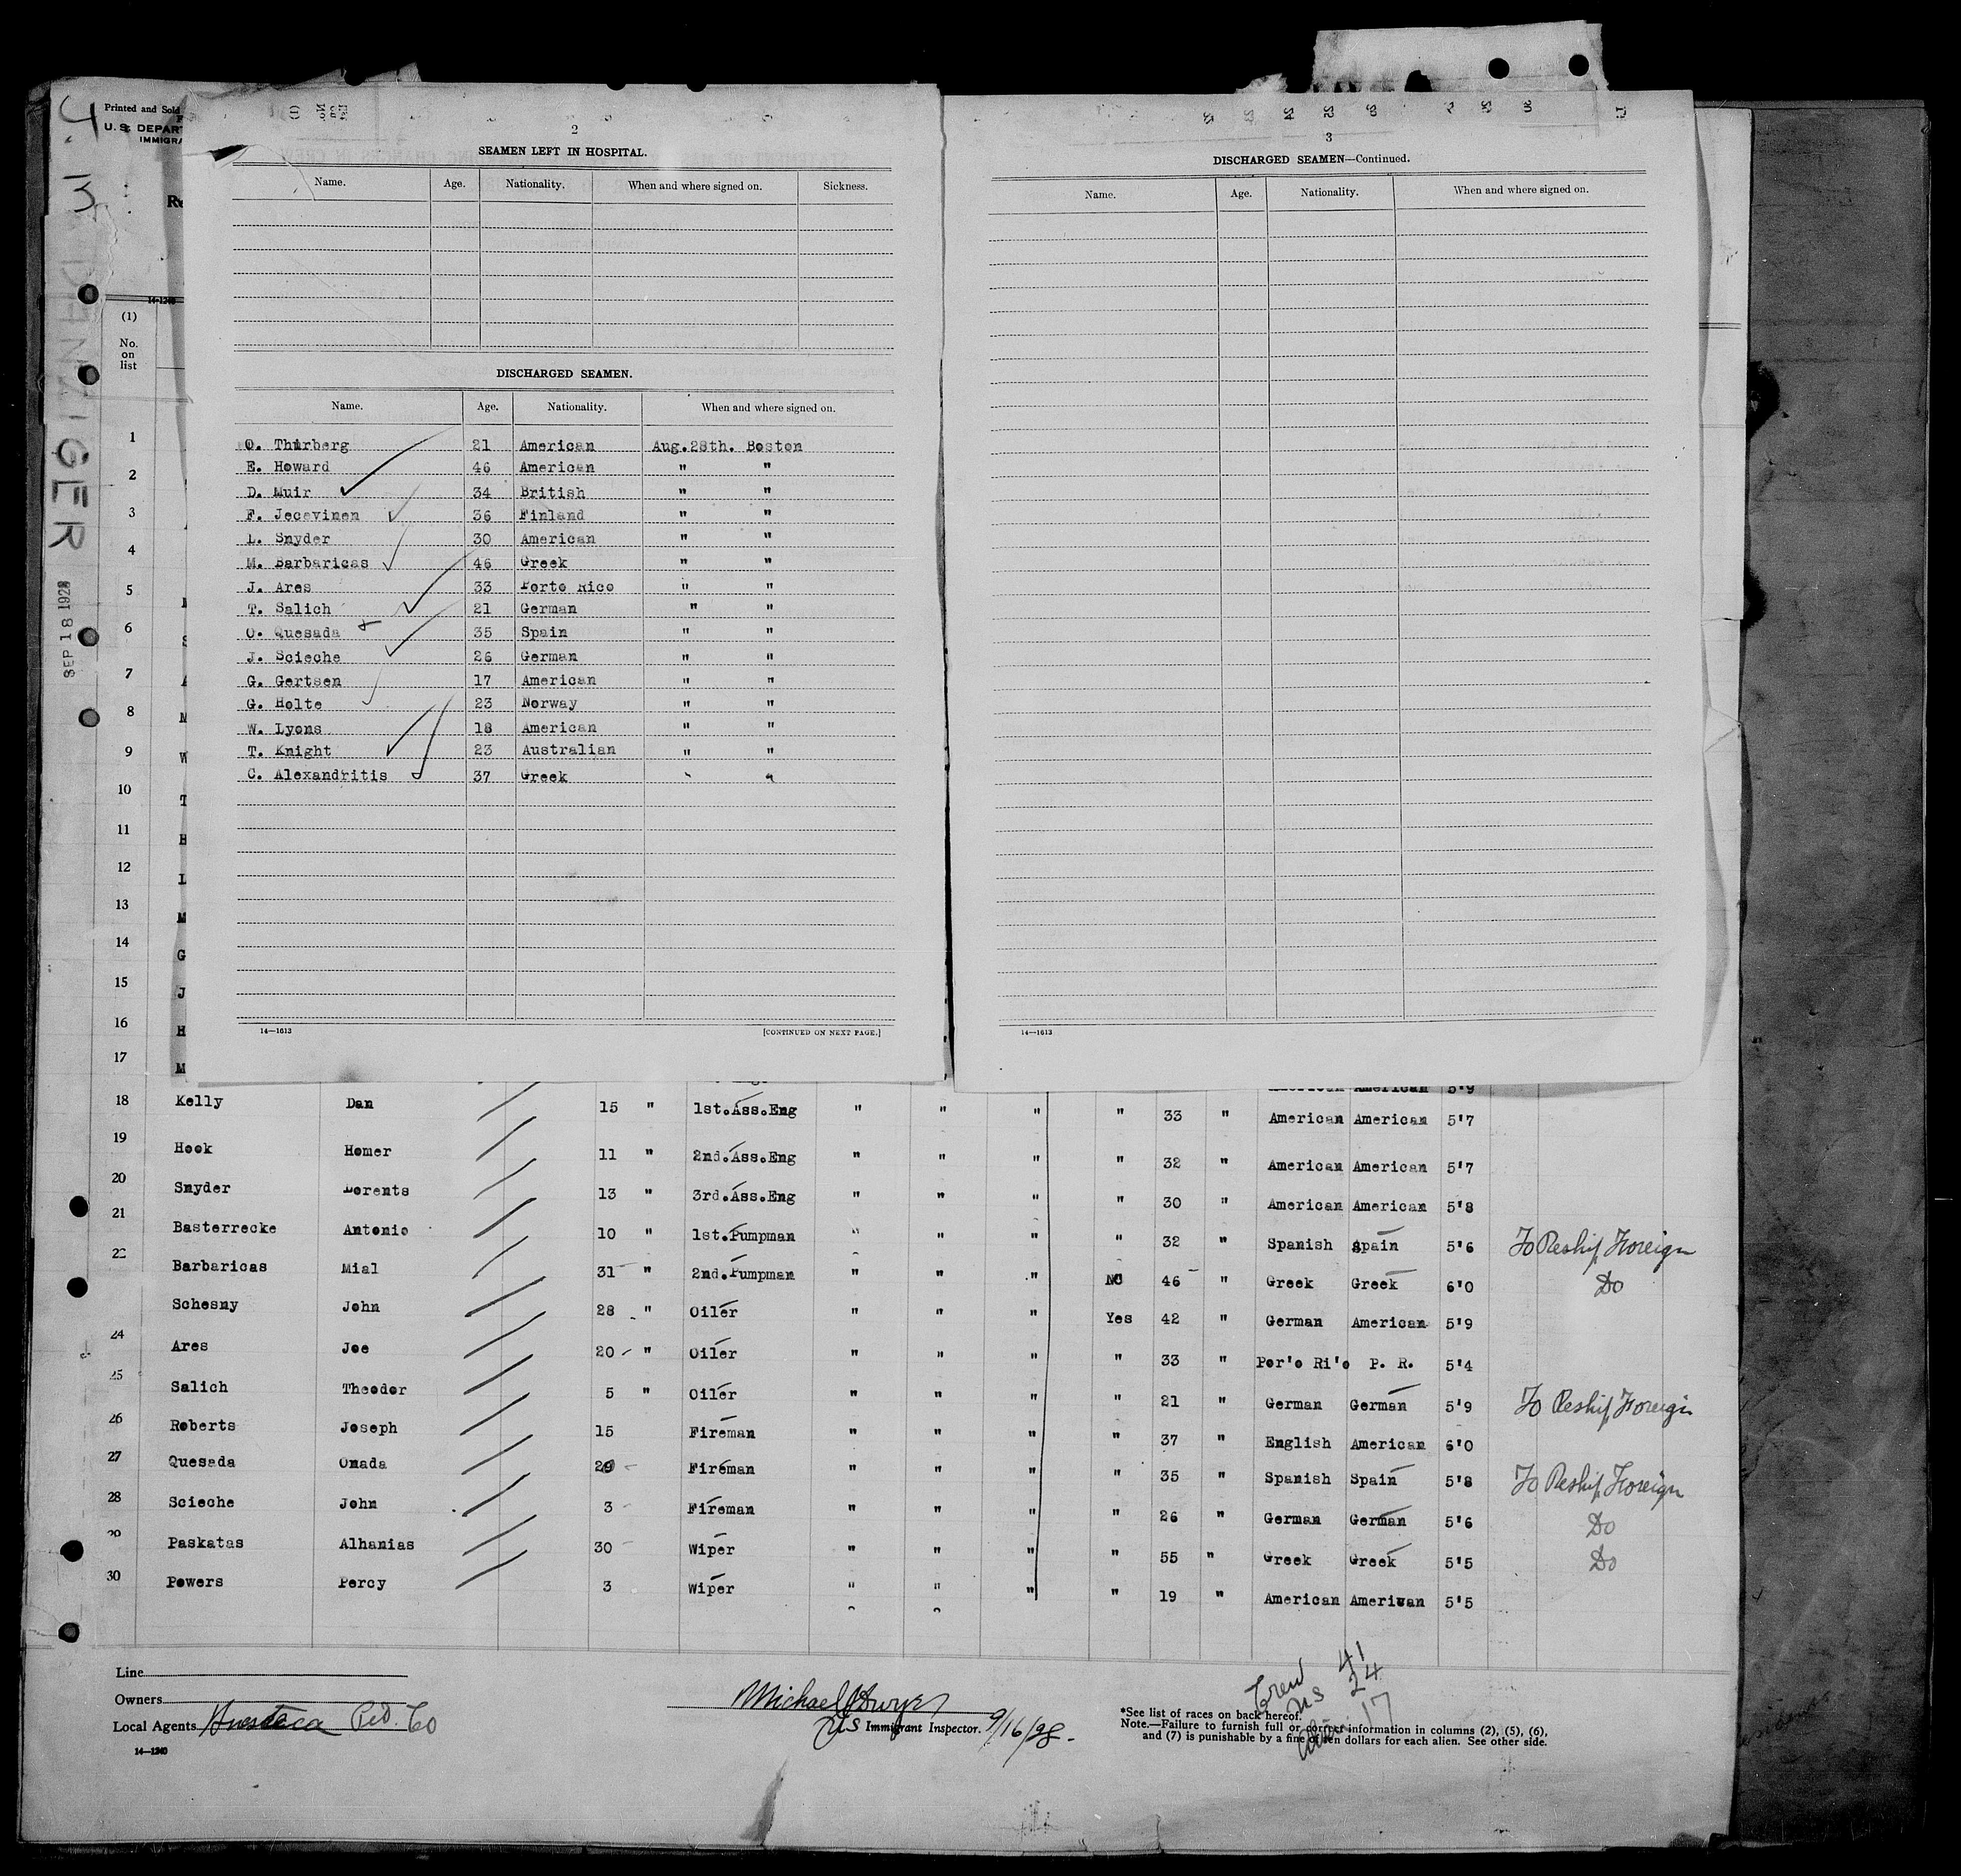 Printed and Sold
U. S. DEPAR
IMMIGRA
DANZIGER
SEP 18 1928
14-1240
(1)
No.
on
list
2
SEAMEN LEFT IN HOSPITAL.
Name. Age. Nationality. When and where signed on. Sickness.
DISCHARGED SEAMEN.
Name. Age. Nationality. When and where signed on.
O. Thurberg 21 American Aug.28th. Boston
E. Howard 46 American " "
D. Muir 34 British " "
F. Jecevinen 36 Finland " "
L. Snyder 30 American " "
M. Barbaricas 46 Greek " "
J. Ares 33 Porto Rico " "
T. Salich 21 German " "
O. Quesada 35 Spain " "
J. Scieche 26 German " "
G. Gertsen 17 American " "
G. Holte 23 Norway " "
W. Lyons 18 American " "
T. Knight 23 Australian " "
C. Alexandritis 37 Greek " "
14—1613 [CONTINUED ON NEXT PAGE.]
3
DISCHARGED SEAMEN—Continued.
Name. Age. Nationality. When and where signed on.
14—1613
1
2
3
4
5
6
7
8
9
10
11
12
13
14
15
16
17
American American 5'9
18 Kelly Dan 15 " 1st.Ass.Eng " " " " 33 " American American 5'7
19 Hook Homer 11 " 2nd.Ass.Eng " " " " 32 " American American 5'7
20 Snyder Lorents 13 " 3rd.Ass.Eng " " " " 30 " American American 5'8
21 Basterrecke Antonio 10 " 1st.Pumpman " " " " 32 " Spanish Spain 5'6 To Reship Foreign
22 Barbaricas Mial 31 " 2nd.Pumpman " " " NO 46 " Greek Greek 6'0 Do
Schesny John 28 " Oiler " " " Yes 42 " German American 5'9
24 Ares Joe 20 " Oiler " " " " 33 " Por'o Ri'o P. R. 5'4
25 Salich Theodor 5 " Oiler " " " " 21 " German German 5'9 To Reship Foreign
26 Roberts Joseph 15 Fireman " " " " 37 " English American 6'0
27 Quesada Omada 29 Fireman " " " " 35 " Spanish Spain 5'8 To Reship Foreign
28 Scieche John 3 Fireman " " " " 26 " German German 5'6 Do
29 Paskatas Alhanias 30 Wiper " " " " 55 " Greek Greek 5'5 Do
30 Powers Percy 3 Wiper " " " " 19 " American American 5'5
Line
Owners
Local Agents Huasteca Pet. Co
14—1240
Michael Dwyer
US Immigrant Inspector. 9/16/28.
Crew 41
US 24
Alien 17
*See list of races on back hereof.
Note.—Failure to furnish full or correct information in columns (2), (5), (6),
and (7) is punishable by a fine of ten dollars for each alien. See other side.